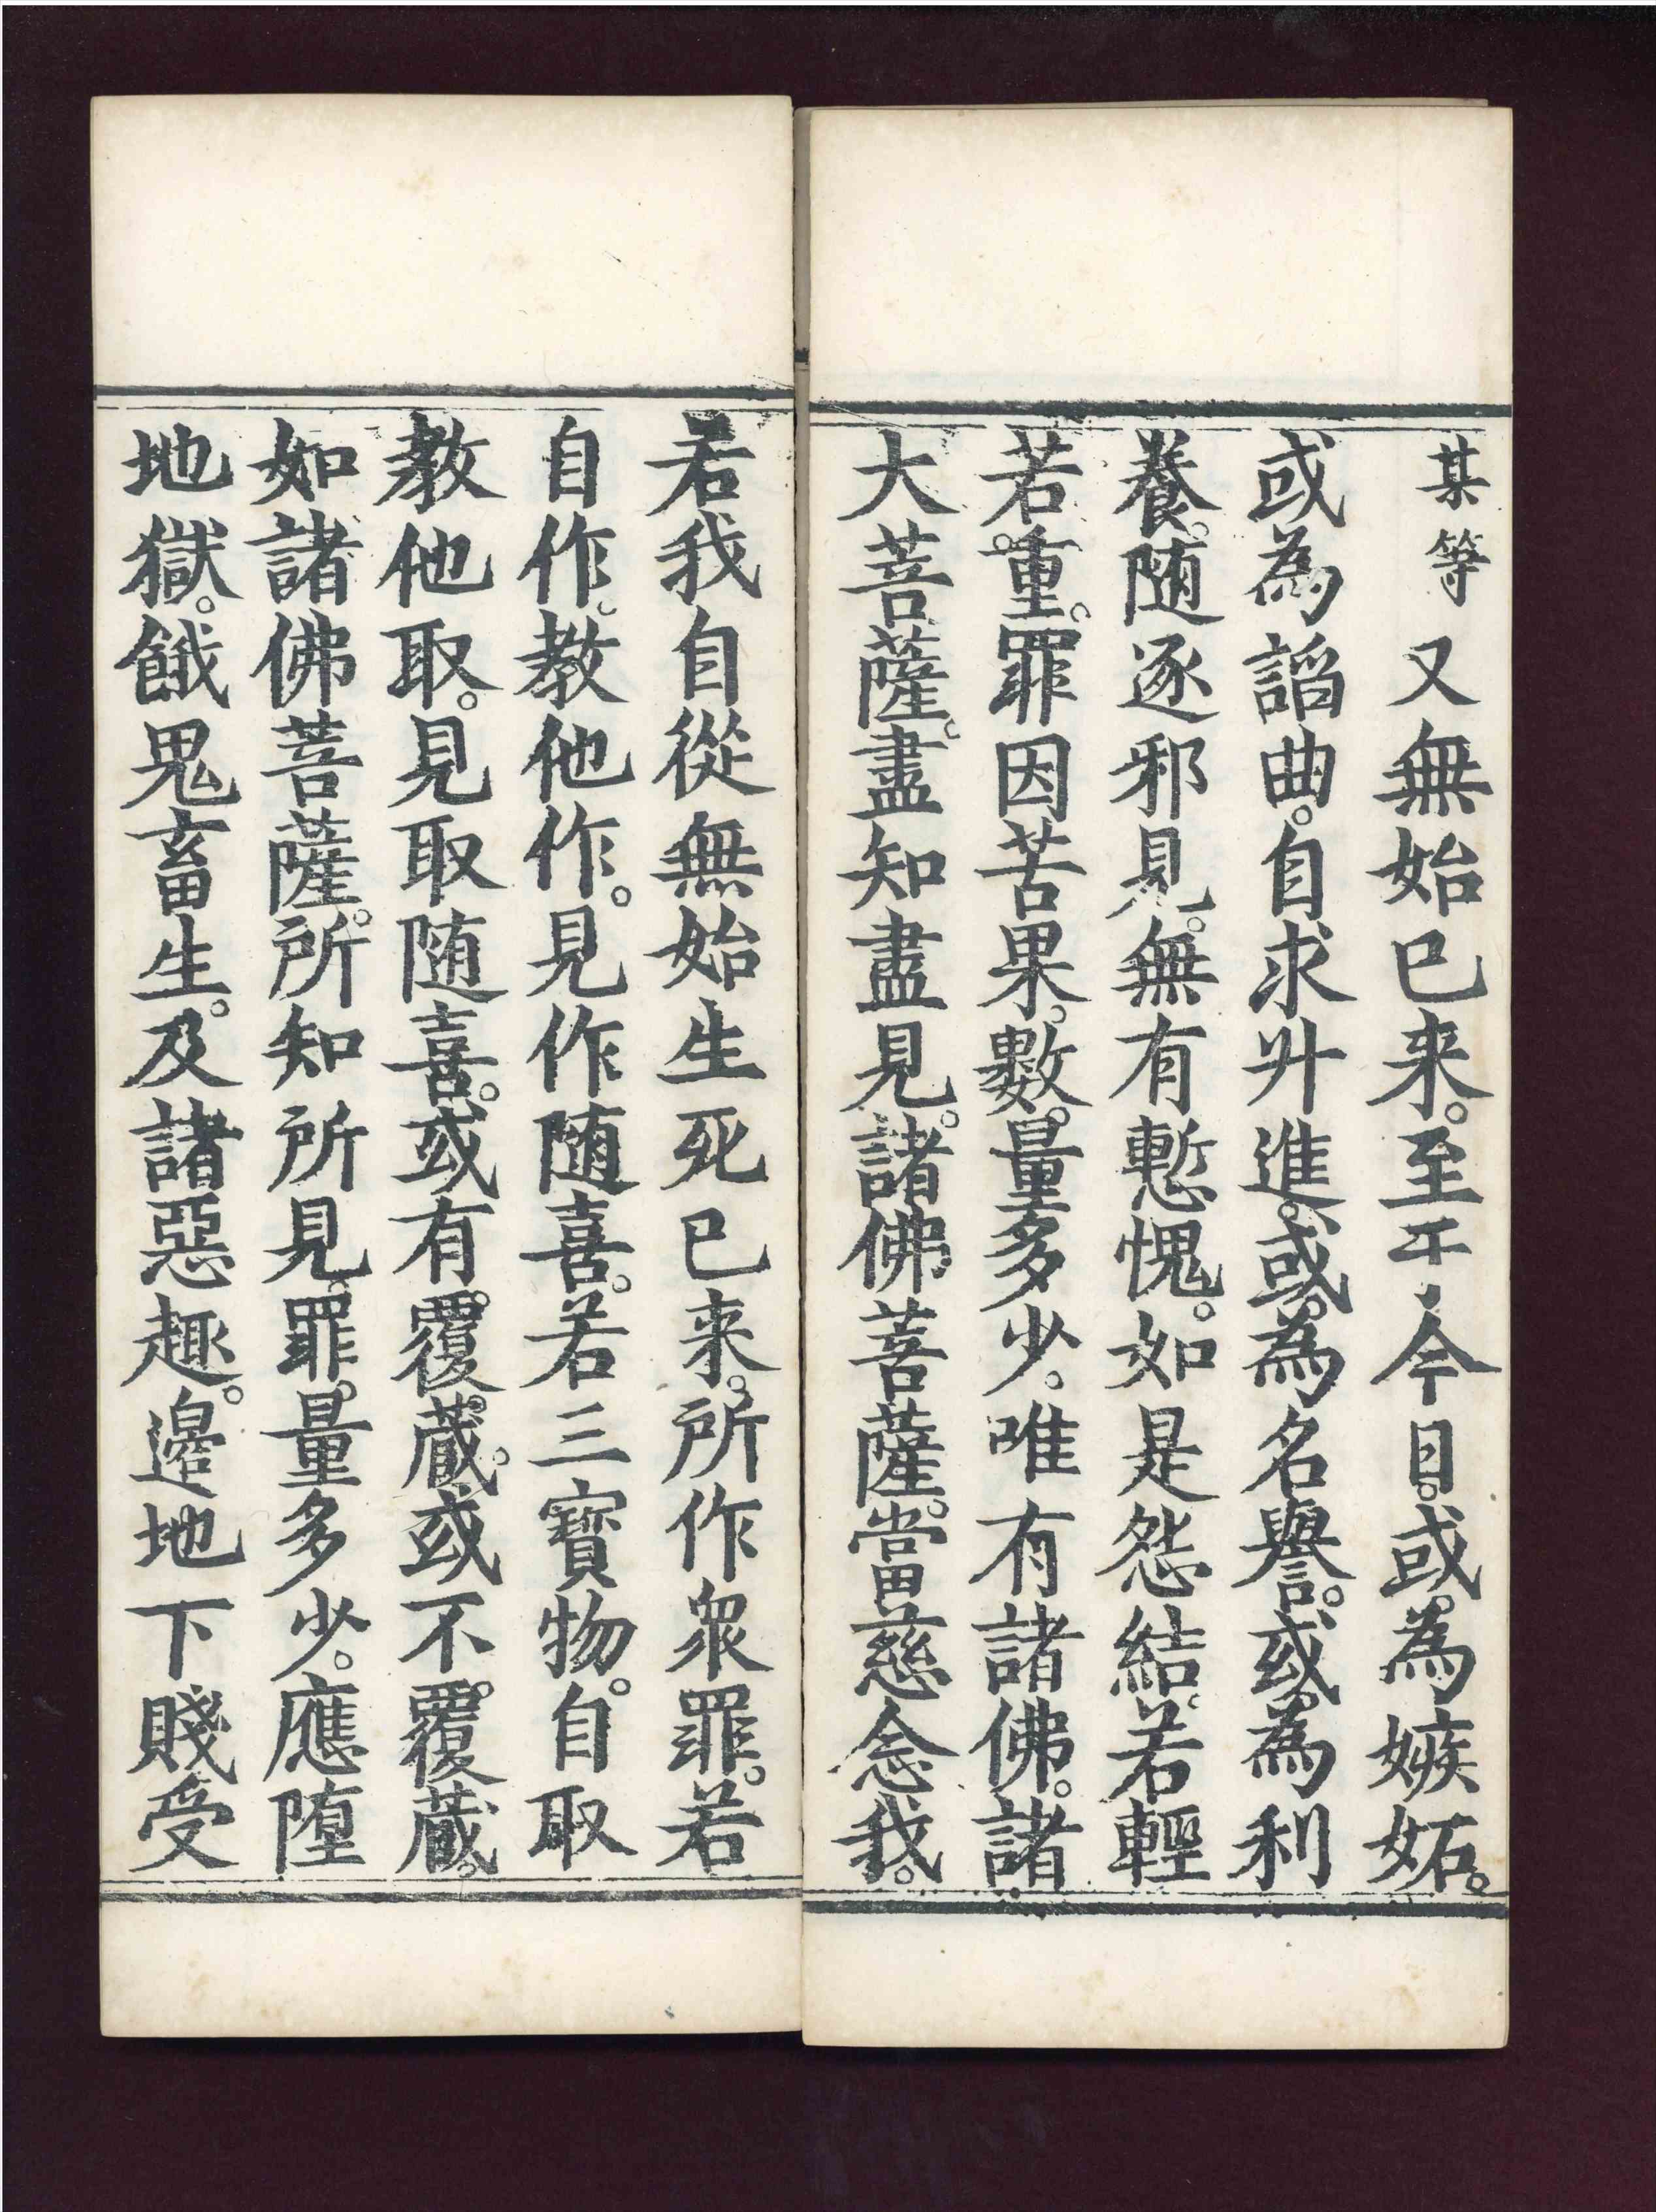 某等又無始已来。至于今日。或。為嫉妬。
或為謟曲。自求升進。或。為名譽。或。為利
養。随逐邪見。無有慙愧。如是怨結。若輕
若。重。罪因苦果。數。量多少。唯有諸佛。諸
大菩薩。盡知盡見。諸佛菩薩。當慈念我。
若我自從無始生死已来。所作衆罪。若
自作。教他作。見作随喜。若三寶物。自取
教他取。見取随喜。或有。覆。蔵。或不。覆蔵。
如諸佛菩薩。所知所見。罪。量多少。應堕
地獄。餓鬼畜生。及諸惡趣。邊地下賤受